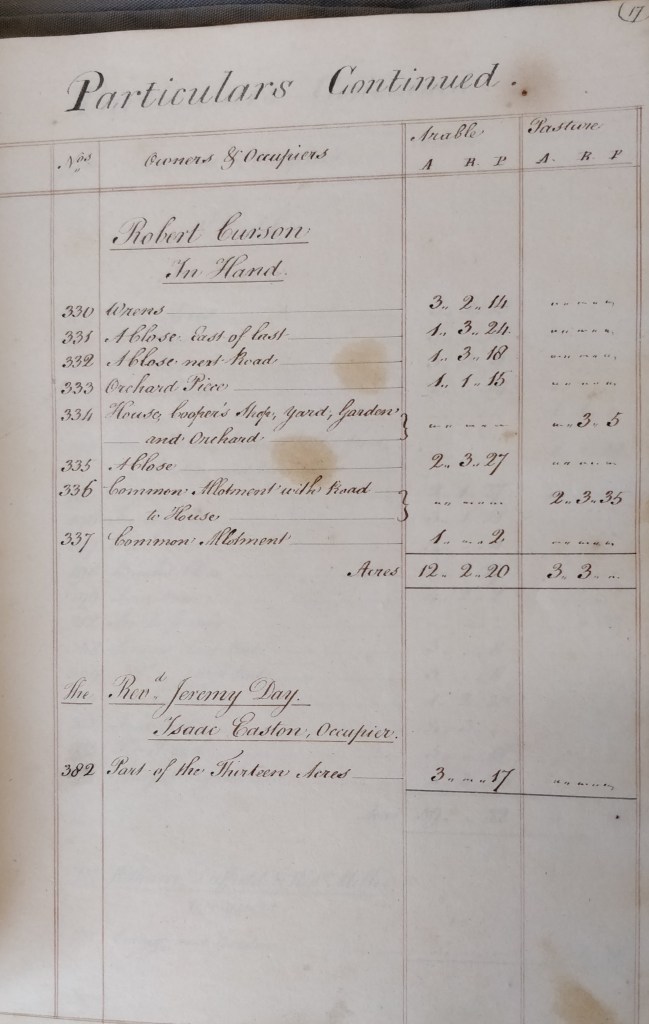 17
Particulars Continued.
Nos Owners & Occupiers Arable Pasture
A R P A. R P
Robert Curson
In Hand.
330 Wrens 3 " 2 " 14 " " " " "
331 A Close East of last 1 " 3 " 24 " " " " "
332 A Close next Road 1 " 3 " 18 " " " " "
333 Orchard Piece 1 " 1 " 15 " " " " "
334 House, Cooper's Shop, Yard, Garden
and Orchard " " " " " " " 3 " 5
335 A Close 2 " 3 " 27 " " " " "
336 Common Allotment with Road
to House " " " " " 2 " 3 " 35
337 Common Allotment 1 " " " 2 " " " " "
Acres 12 " 2 " 20 3 " 3 " "
The Revd. Jeremy Day.
Isaac Easton, Occupier.
382 Part of the Thirteen Acres 3 " " " 17 " " " " "